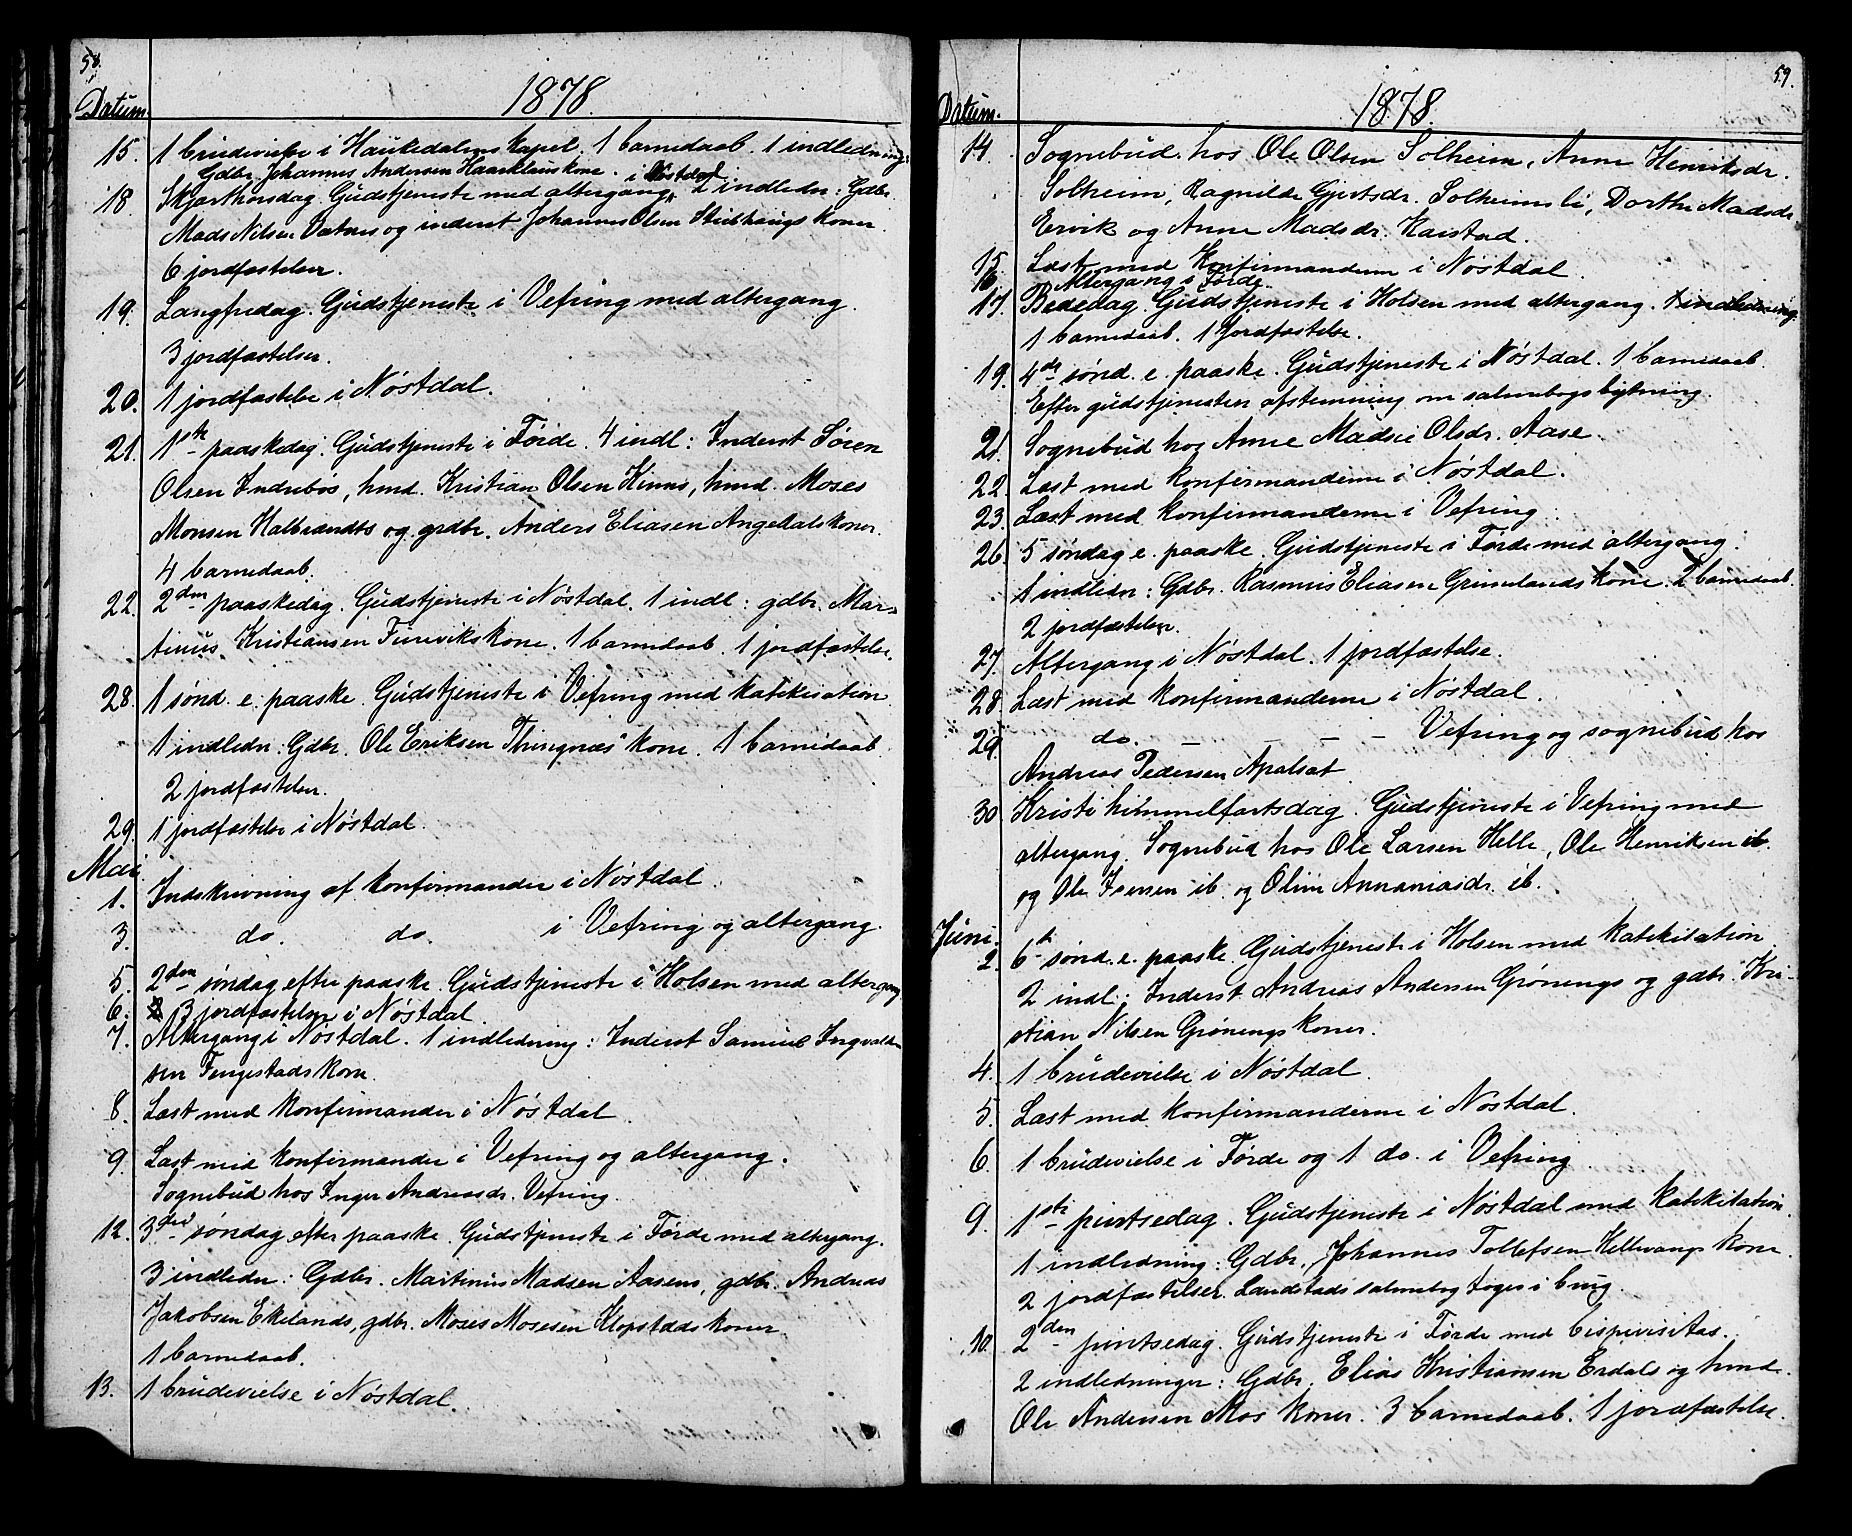 58.
Datum.
1878.
15. 1 brudevielse i Haukedalens kapel. 1 barnedaab. 1 indledning:
Gdbr. Johannes Andersen Haarklaus kone.
18. Skjærthorsdag. Gudstjeneste med altergang i Nøstdal. 2 indledn: Gdbr.
Mads Nilsen Vætnes og inderst Johannes Olsen Stubhaugs koner.
6 jordfæstelser.
19. Langfredag. Gudstjeneste i Vefring med altergang.
3 jordfæstelser.
20. 1 jordfæstelse i Nøstdal.
21. 1ste paaskedag. Gudstjeneste i Førde. 4 indl: Inderst Søren
Olsen Indrebøs, hmd. Kristian Olsen Kinns, hmd. Moses
Monsen Halbrændts og grdbr. Anders Eliasen Angedals koner.
4 barnedaab.
22. 2den paaskedag. Gudstjeneste i Nøstdal. 1 indl: gdbr. Mar-
tinus Kristiansen Furevikskone. 1 barnedaab. 1 jordfæstelse.
28. 1 sønd. e. paaske. Gudstjeneste i Vefring med katekisation
1 indledn: Gdbr. Ole Eriksen kone. 1 barnedaab
2 jordfæstelser.
29. 1 jordfæstelse i Nøstdal.
Mai
1. Indskrivning af konfirmander i Nøstdal.
3. do. do. i Vefring og altergang.
5. 2den søndag efter paaske. Gudstjeneste i Holsen med altergang
6. 3 jordfæstelser i Nøstdal
7. Altergang i Nøstdal. 1 indledning: Inderst Samuel Ingvald-
sen Fengestads kone.
8. Læst med konfirmander i Nøstdal.
9. Læst med konfirmander i Vefring og altergang.
Sognebud hos Inger Andreasdr. Vefring.
12. 3die søndag efter paaske. Gudstjeneste i Førde med altergang.
3 indledn: Gdbr. Martinus Madsen Aasens, gdbr. Andreas
Jakobsen Ekelands, gdbr. Moses Mosesen Klopstads koner.
1 barnedaab.
13. 1 brudevielse i Nøstdal.
59.
Datum.
1878.
14. Sognebud hos Ole Olsen Solheim, Anne Henriksdr.
Solheim, Ragnilde Gjertsdr. Solheimsli, Dorthe Madsdr.
Ervik og Anne Madsdr. Karstad.
15. Læst med konfirmanderne i Nøstdal.
16. Altergang i Førde.
17. Bededag. Gudstjeneste i Holsen med altergang. 1 indledning.
1 barnedaab. 1 jordfæstelse.
19. 4de sønd. e. paaske. Gudstjeneste i Nøstdal. 1 barnedaab.
Efter gudstjenesten afstemning om salmebogsbytning.
21. Sognebud hos Anne Madsie Olsdr. Aase.
22. Læst med konfirmanderne i Nøstdal.
23. Læst med konfirmanderne i Vefring.
26. 5 søndag e. paaske. Gudstjeneste i Førde med altergang.
1 indledn: Gdbr. Rasmus Eliasen Grimelands kone. 2 barnedaab.
2 jordfæstelser.
27. Altergang i Nøstdal. 1 jordfæstelse.
28. Læst med konfirmanderne i Nøstdal.
29. do. — — — Vefring og sognebud hos
Andreas Pedersen Apalsæt.
30 Kristi himmelfartsdag. Gudstjeneste i Vefring med
altergang. Sognebud hos Ole Larsen Helle, Ole Henriksen ib.
og Ole Iversen ib. og Oline Annaniasdr. ib.
Juni.
2. 6te sønd. e. paaske. Gudstjeneste i Holsen med katekisation
2 indl: Inderst Andreas Andersen Grønengs og gdbr. Kri-
stian Nilsen Grønengs koner.
4. 1 brudevielse i Nøstdal.
5. Læst med konfirmanderne i Nøstdal.
6. 1 brudevielse i Førde og 1 do. i Vefring.
9. 1ste pintsedag. Gudstjeneste i Nøstdal med katekisation.
1 indledning: Gdbr. Johannes Tollefsen Hellevangs kone.
2 jordfæstelser. Landstads salmebog toges i brug.
10. 2den pintsedag. Gudstjeneste i Førde med bispevisitas.
2 indledninger: Gdbr. Elias Kristiansen Erdals og hmd.
Ole Andersen Mos koner. 3 barnedaab. 1 jordfæstelse.